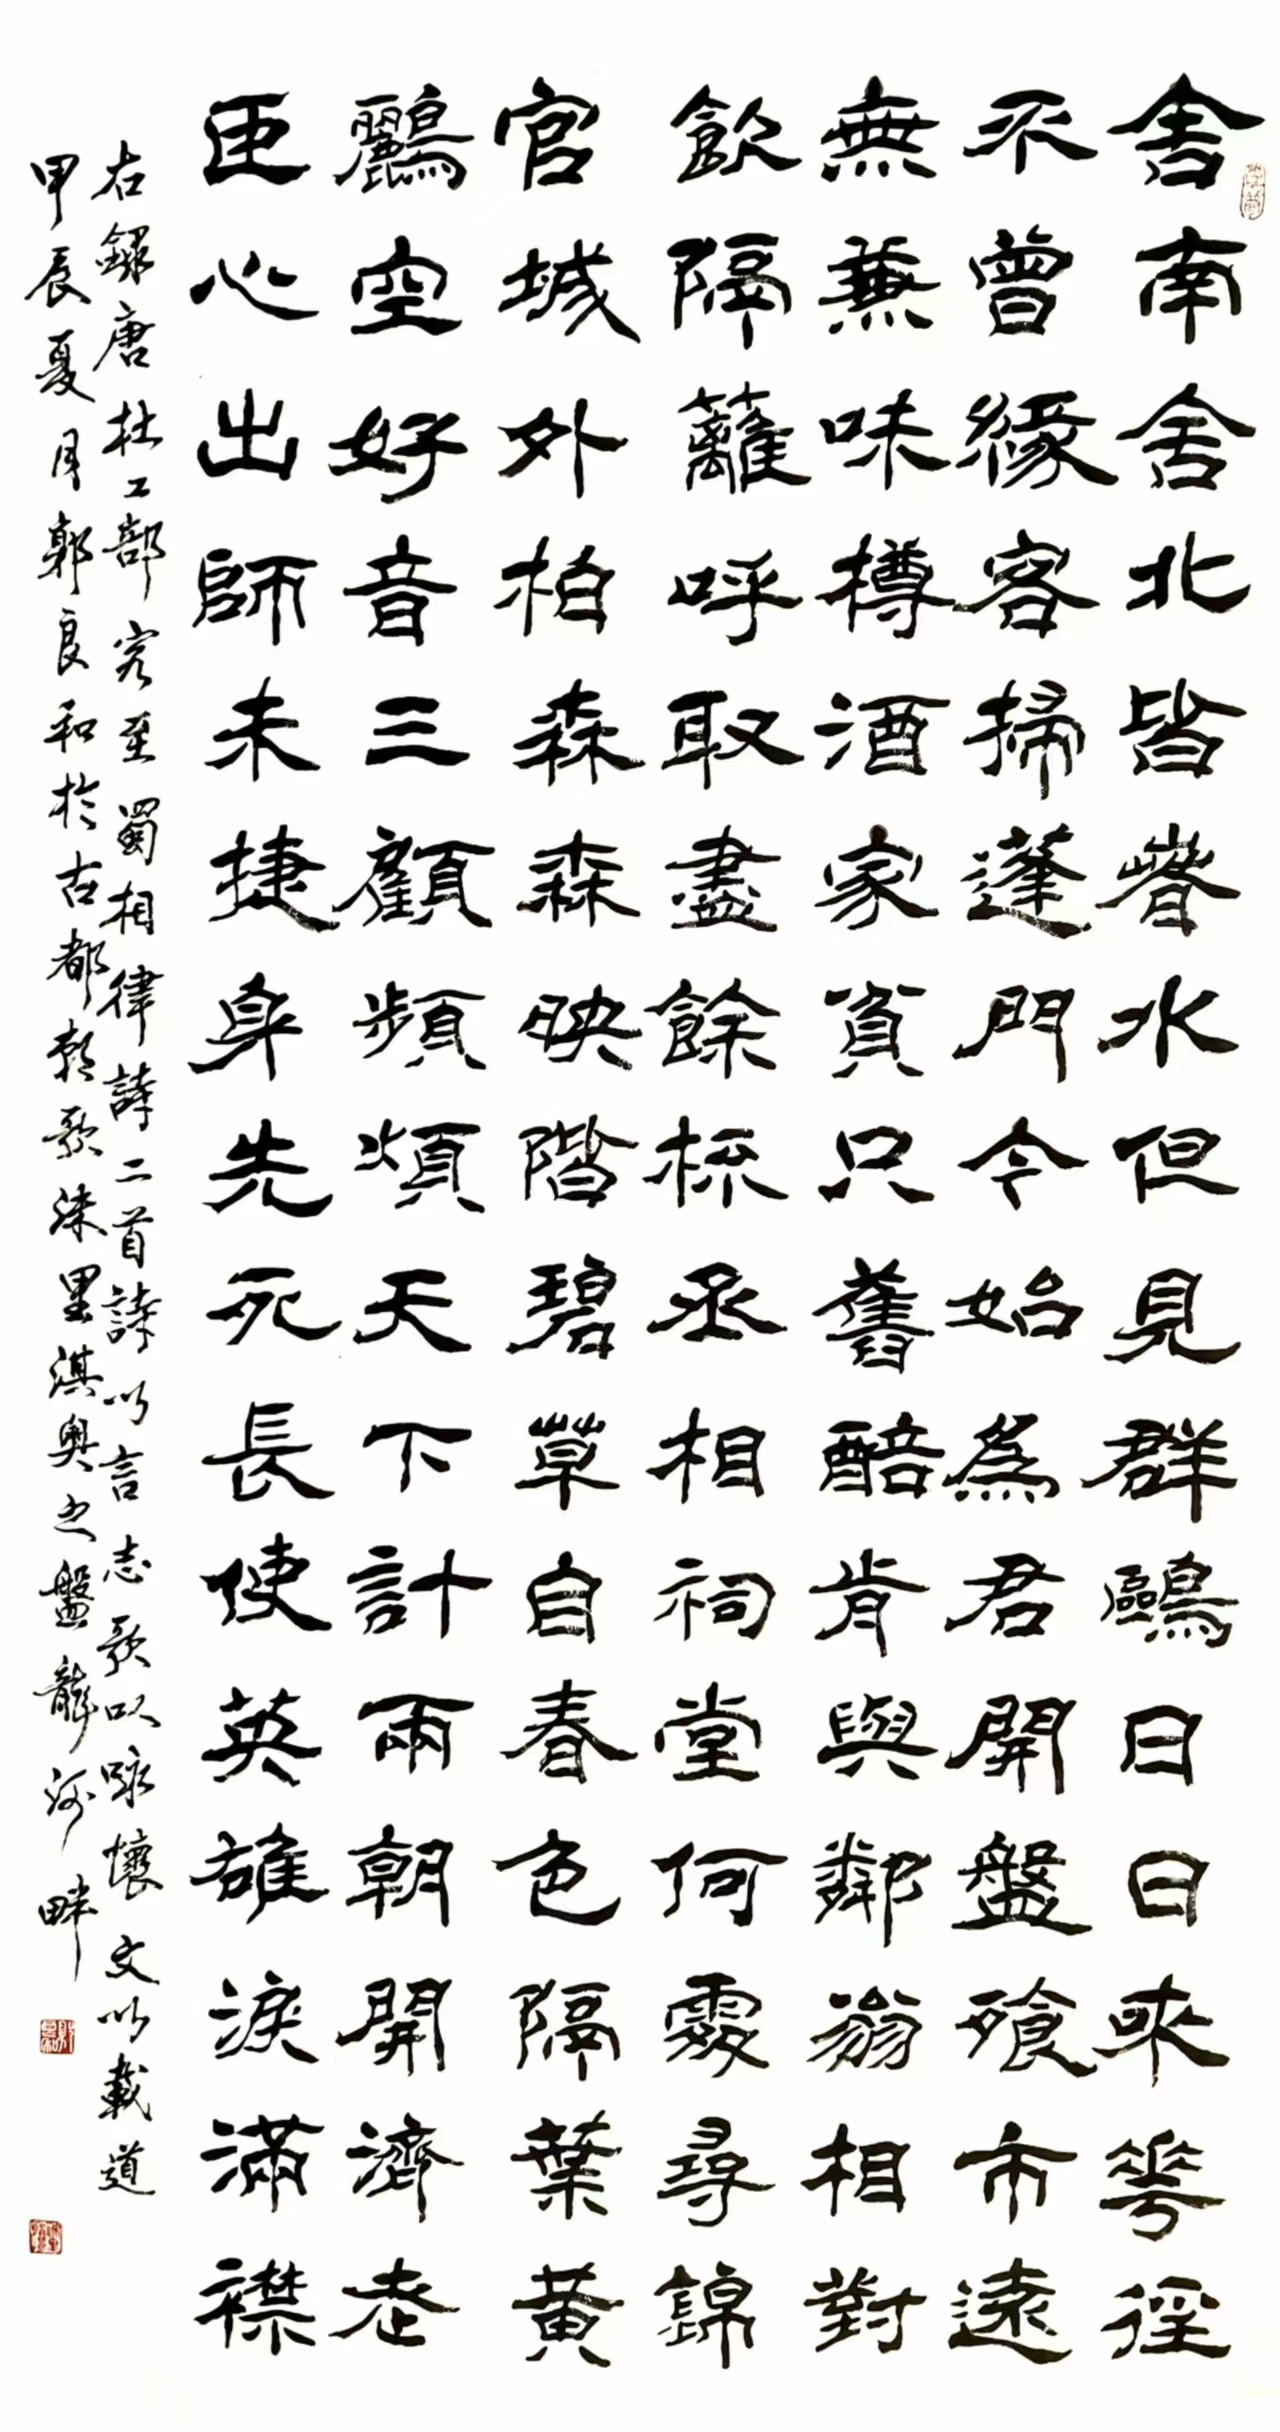 舍南舍北皆春水但見群鷗日日來花徑
不曾緣客掃蓬門今始為君開盤飧市遠
無兼味樽酒家貧只舊醅肯與鄰翁相對
飲隔籬呼取盡餘杯丞相祠堂何處尋錦
官城外柏森森映階碧草自春色隔葉黃
鸝空好音三顧頻煩天下計兩朝開濟老
臣心出師未捷身先死長使英雄淚滿襟
右錄唐杜工部客至蜀相律詩二首詩以言志歌以咏懷文以載道
甲辰夏月郭良和於古都朝歌沬里淇奥之盤龍河畔